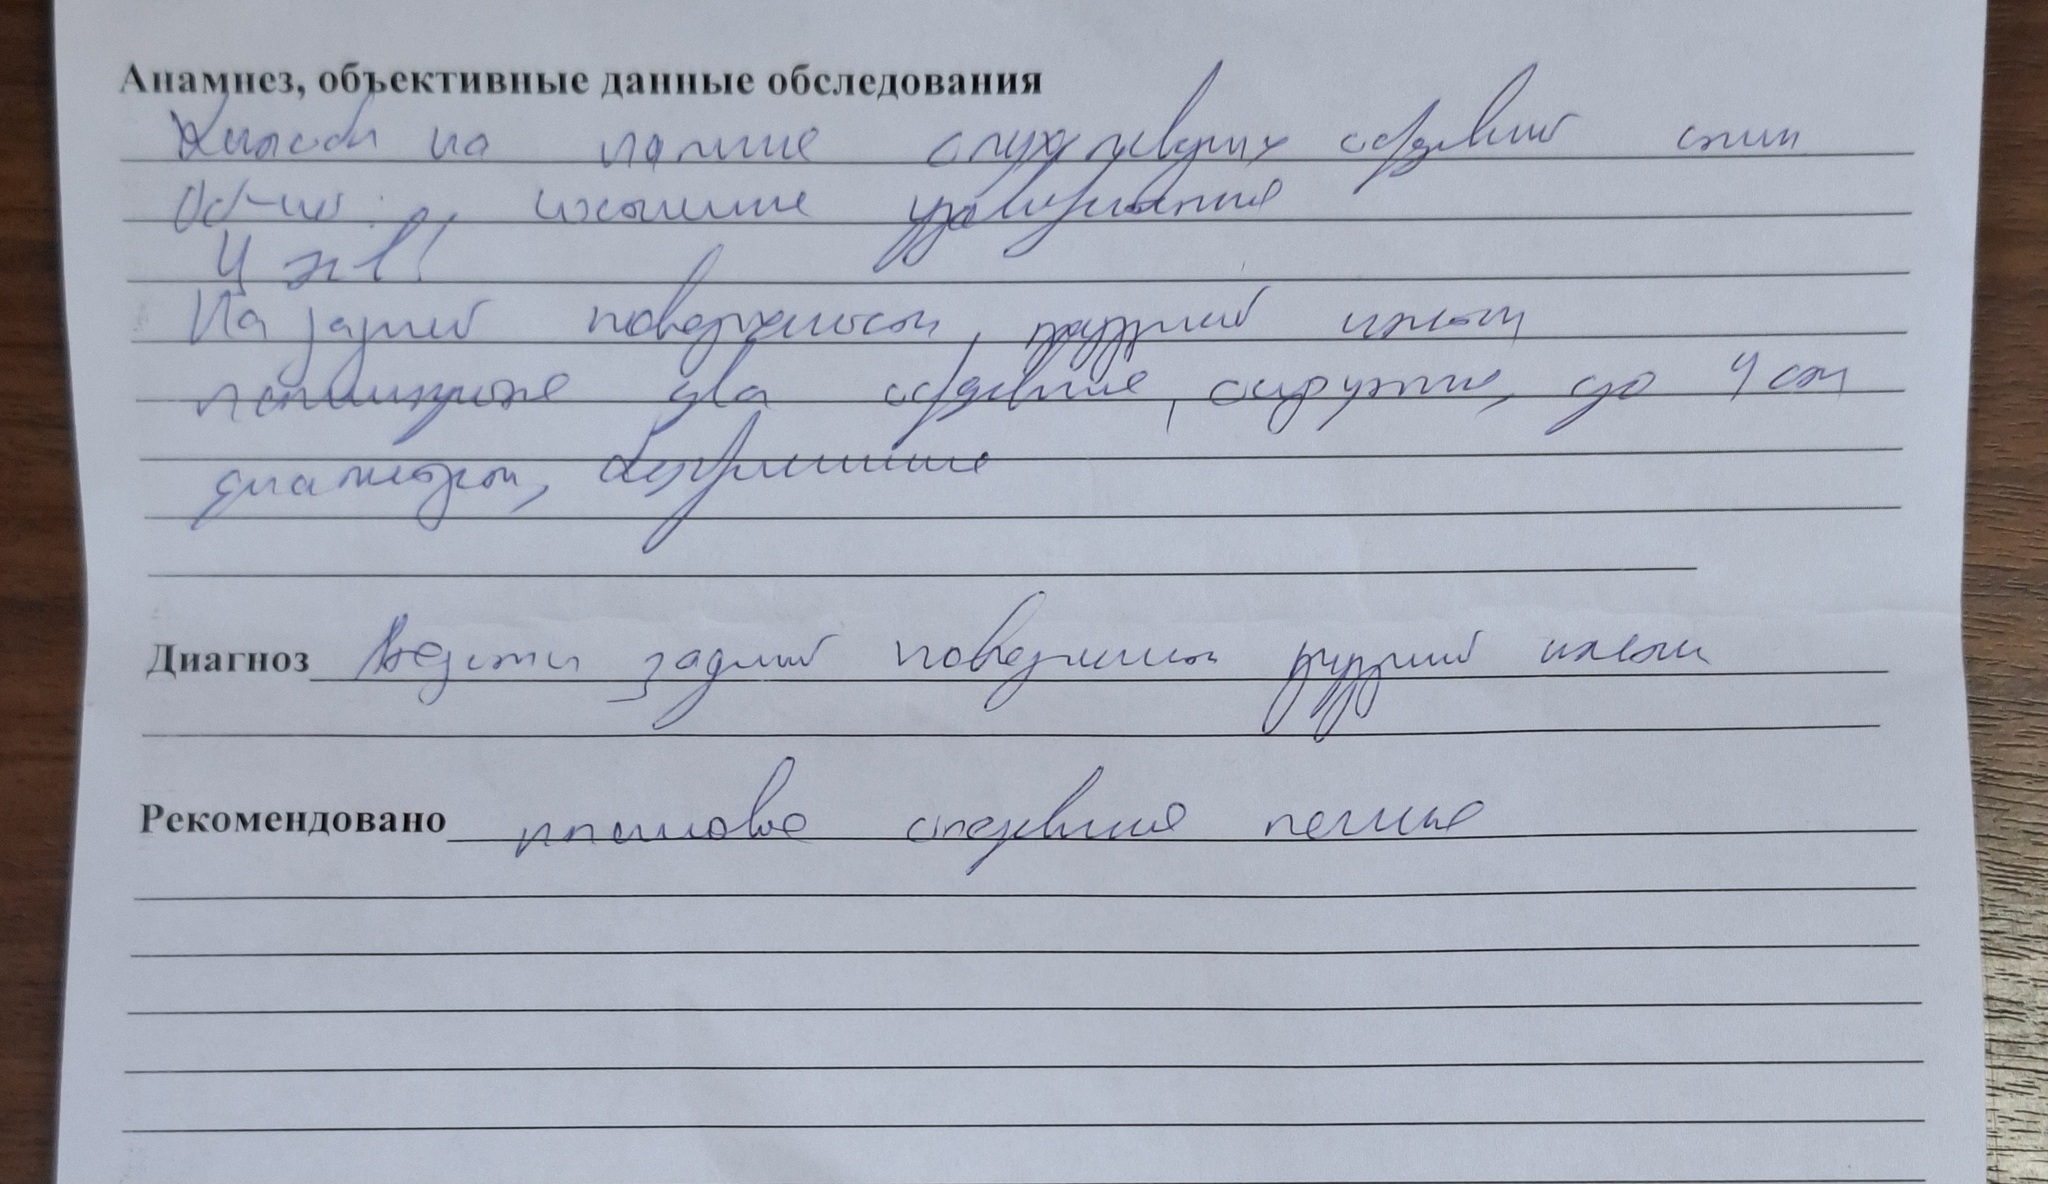 Анамнез, объективные данные обследования
Жалобы на наличие опухолевидных образований спины
Об-но: состояние удовлетворительное
На задней поверхности грудной клетки
пальпируются два образования, округлые, до 4 см
диаметром, безболезненные
Диагноз задней поверхности грудной клетки
Рекомендовано плановое оперативное лечение